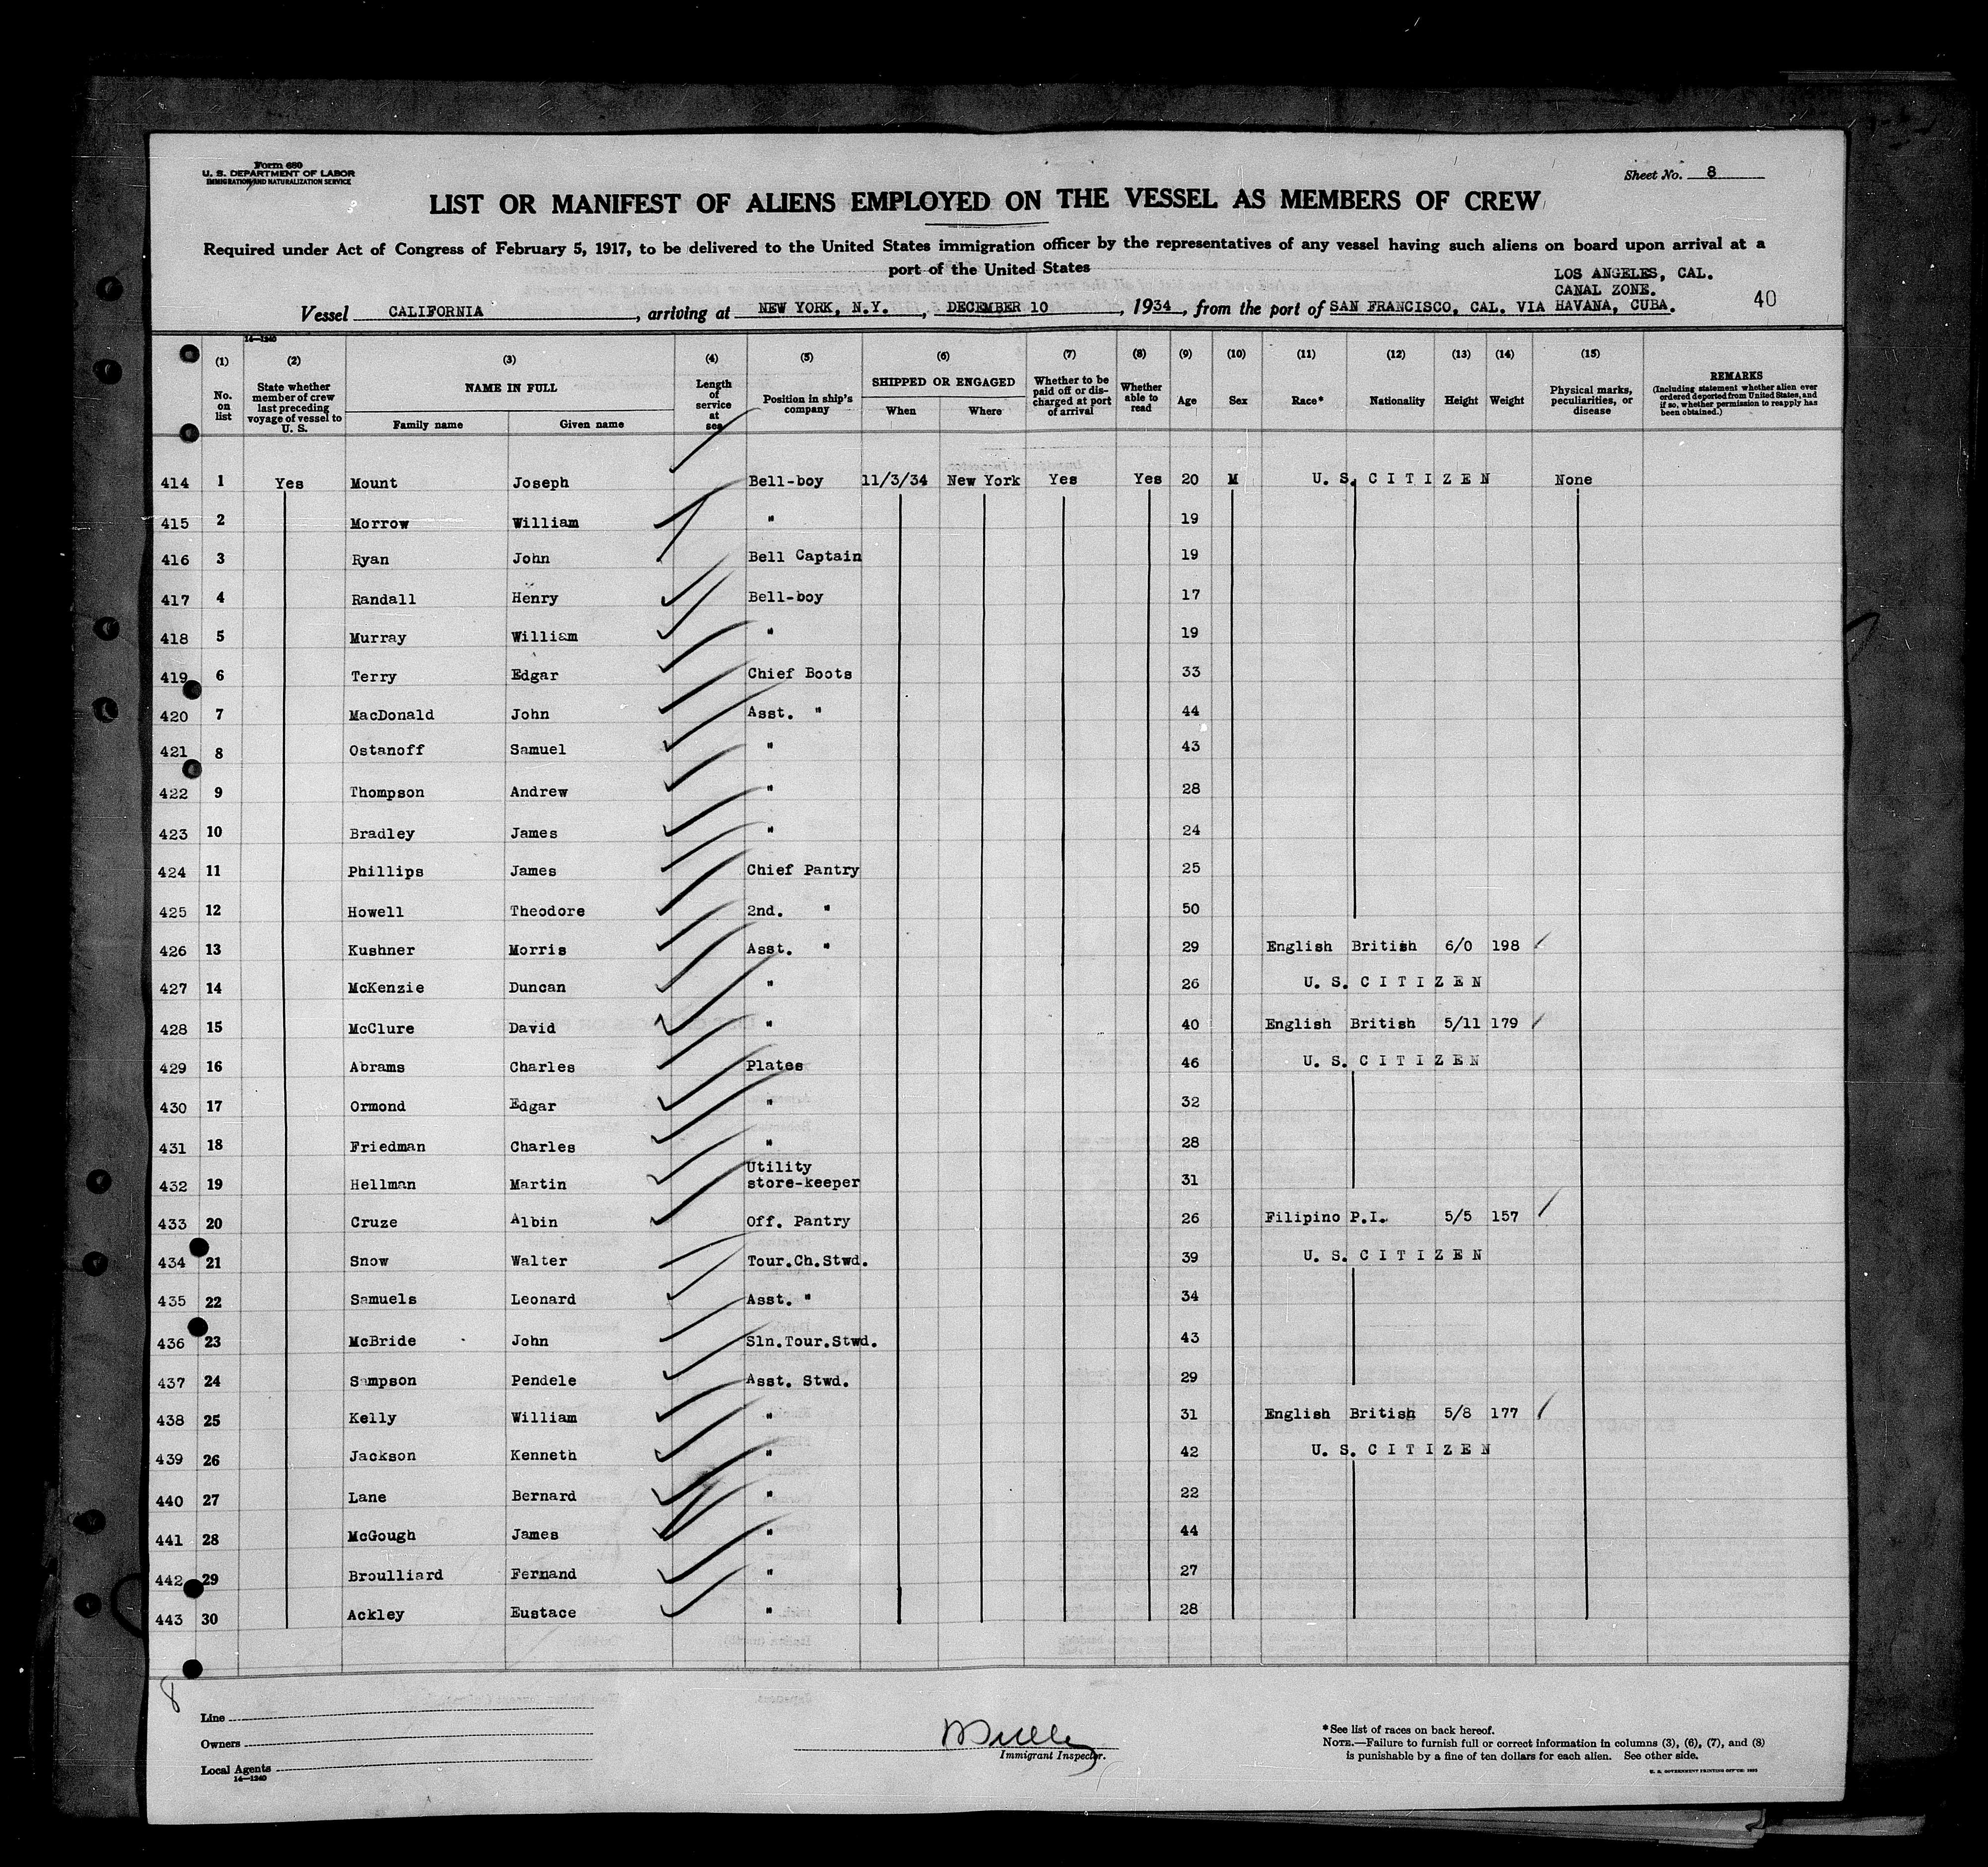 Form 680
U. S. DEPARTMENT OF LABOR
IMMIGRATION AND NATURALIZATION SERVICE
Sheet No. 8
LIST OR MANIFEST OF ALIENS EMPLOYED ON THE VESSEL AS MEMBERS OF CREW
Required under Act of Congress of February 5, 1917, to be delivered to the United States immigration officer by the representatives of any vessel having such aliens on board upon arrival at a
port of the United States
LOS ANGELES, CAL.
CANAL ZONE.
40
Vessel CALIFORNIA, arriving at NEW YORK, N.Y., DECEMBER 10, 1934, from the port of SAN FRANCISCO, CAL. VIA HAVANA, CUBA.
14—1240
(1) (2) (3) (4) (5) (6) (7) (8) (9) (10) (11) (12) (13) (14) (15)
No. on list
State whether member of crew last preceding voyage of vessel to U. S.
NAME IN FULL
Family name
Given name
Length of service at sea
Position in ship's company
SHIPPED OR ENGAGED
When
Where
Whether to be paid off or discharged at port of arrival
Whether able to read
Age
Sex
Race*
Nationality
Height
Weight
Physical marks, peculiarities, or disease
REMARKS
(Including statement whether alien ever ordered deported from United States, and if so, whether permission to reapply has been obtained.)
414 1 Yes Mount Joseph Bell-boy 11/3/34 New York Yes Yes 20 M U. S. CITIZEN None
415 2 Morrow William " 19
416 3 Ryan John Bell Captain 19
417 4 Randall Henry Bell-boy 17
418 5 Murray William " 19
419 6 Terry Edgar Chief Boots 33
420 7 MacDonald John Asst. " 44
421 8 Ostanoff Samuel " 43
422 9 Thompson Andrew " 28
423 10 Bradley James " 24
424 11 Phillips James Chief Pantry 25
425 12 Howell Theodore 2nd. " 50
426 13 Kushner Morris Asst. " 29 English British 6/0 198
427 14 McKenzie Duncan " 26 U. S. CITIZEN
428 15 McClure David " 40 English British 5/11 179
429 16 Abrams Charles Plates 46 U. S. CITIZEN
430 17 Ormond Edgar " 32
431 18 Friedman Charles " 28
432 19 Hellman Martin Utility store-keeper 31
433 20 Cruze Albin Off. Pantry 26 Filipino P.I. 5/5 157
434 21 Snow Walter Tour.Ch.Stwd. 39 U. S. CITIZEN
435 22 Samuels Leonard Asst. " 34
436 23 McBride John Sln.Tour.Stwd. 43
437 24 Sampson Pendele Asst. Stwd. 29
438 25 Kelly William " 31 English British 5/8 177
439 26 Jackson Kenneth " 42 U. S. CITIZEN
440 27 Lane Bernard " 22
441 28 McGough James " 44
442 29 Broulliard Fernand " 27
443 30 Ackley Eustace " 28
8
Line
Owners
Local Agents
14—1240
Immigrant Inspector.
*See list of races on back hereof.
NOTE.—Failure to furnish full or correct information in columns (3), (6), (7), and (8)
is punishable by a fine of ten dollars for each alien. See other side.